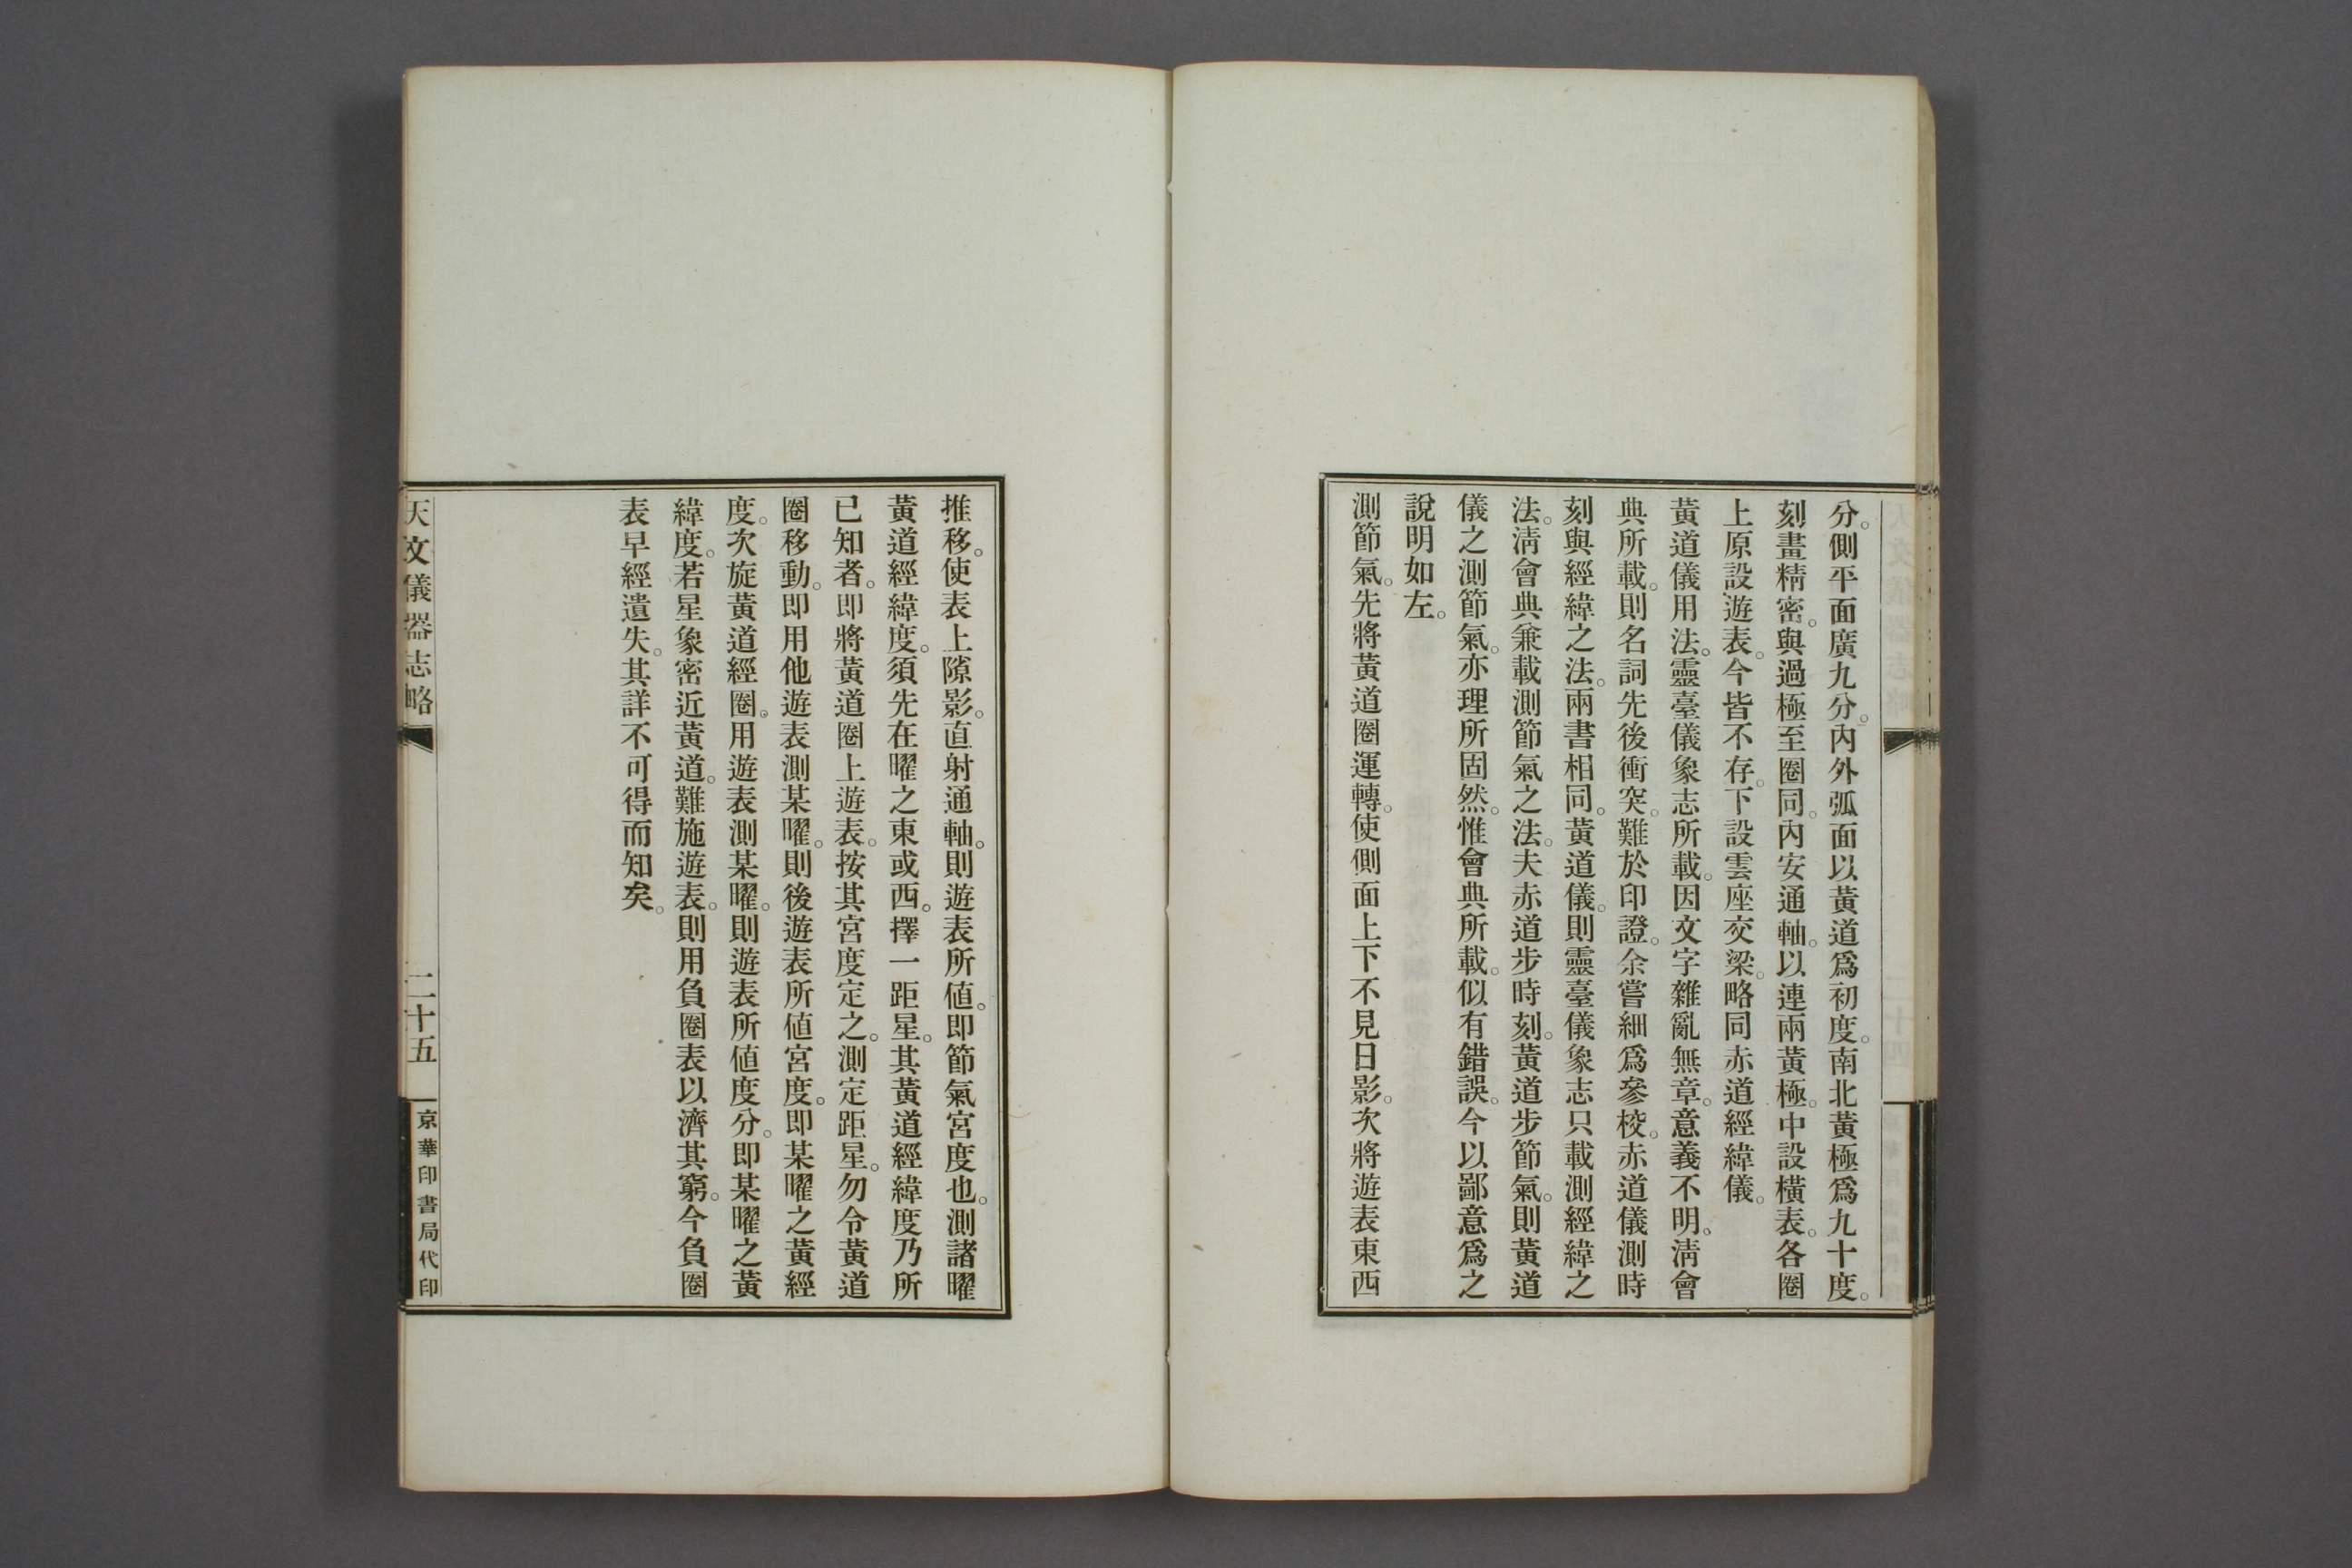 分。側平面廣九分。內外弧面以黃道爲初度。南北黃極爲九十度。
刻畫精密。與過極至圈同。內安通軸。以連兩黃極。中設橫表。各圈
上原設遊表。今皆不存。下設雲座交梁。略同赤道經緯儀。
黃道儀用法。靈臺儀象志所載。因文字雜亂無章。意義不明。淸會
典所載。則名詞先後衝突。難於印證。余嘗細爲參校。赤道儀測時
刻與經緯之法。兩書相同。黃道儀。則靈臺儀象志只載測經緯之
法。淸會典兼載測節氣之法。夫赤道步時刻。黃道步節氣。則黃道
儀之測節氣。亦理所固然。惟會典所載。似有錯誤。今以鄙意爲之
說明如左。
測節氣。先將黃道圈運轉。使側面上下不見日影。次將遊表東西
推移。使表上隙影。直射通軸。則遊表所値。即節氣宮度也。測諸曜
黃道經緯度。須先在曜之東或西。擇一距星。其黃道經緯度乃所
已知者。即將黃道圈上遊表。按其宮度定之。測定距星。勿令黃道
圈移動。即用他遊表測某曜。則後遊表所値宮度。即某曜之黃經
度。次旋黃道經圈。用遊表測某曜。則遊表所値度分。即某曜之黃
緯度。若星象密近黃道。難施遊表。則用負圈表以濟其窮。今負圈
表早經遺失。其詳不可得而知矣。
天文儀器志略
二十五
京華印書局代印